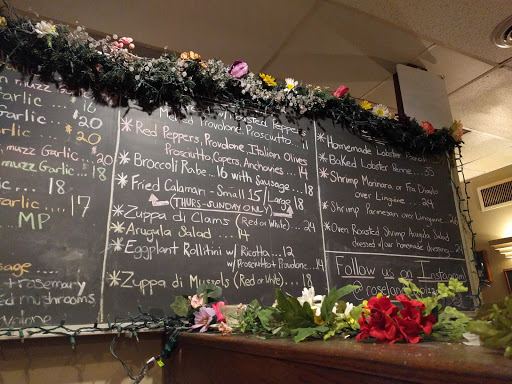 muzz ... 16
Garlic ... $20
Garlic ... $20
muzz Garlic ... 20
muzz Garlic ... 18
Garlic ... 18
Garlic ... 17
MP
+ rosemary
mushrooms
Peppers
Melted Provolone, Prosciutto ... 11
* Red Peppers, Provolone, Italian Olives
Prosciutto, Capers, Anchovies ... 14
* Broccoli Rabe . 16 with Sausage ... 18
* Fried Calamari - Small 15 / Large 18
(THURS-SUNDAY ONLY)
* Zuppa di Clams (Red or White) ... 24
* Arugula Salad ... 14
* Eggplant Rollitini w/ Ricotta ... 12
w/ Prosciutto + Provolone ... 14
* Zuppa di Mussels (Red or White) ... 18
* Homemade Lobster
* Baked Lobster
35
* Shrimp Marinara or Fra Diavlo
over Linguine . 24
* Shrimp Parmesan over Linguine . 24
* Oven Roasted Shrimp Arugula Salad
dressed w/ our homemade dressing 24
Follow us on Instagram